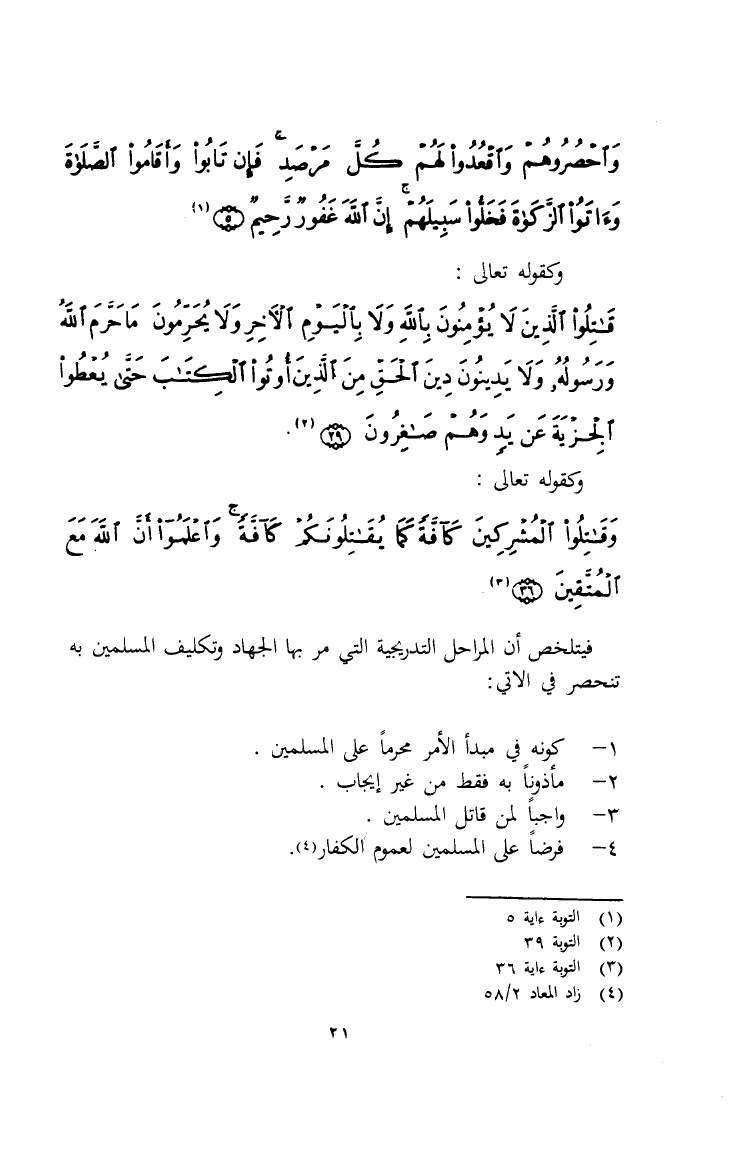 وَٱحْصُرُوهُمْ وَٱقْعُدُوا۟ لَهُمْ كُلَّ مَرْصَدٍۚ فَإِن تَابُوا۟ وَأَقَامُوا۟ ٱلصَّلَوٰةَ
وَءَاتَوُا۟ ٱلزَّكَوٰةَ فَخَلُّوا۟ سَبِيلَهُمْۚ إِنَّ ٱللَّهَ غَفُورٌ رَّحِيمٌ ۝٥ (١)
وكقوله تعالى :
قَٰتِلُوا۟ ٱلَّذِينَ لَا يُؤْمِنُونَ بِٱللَّهِ وَلَا بِٱلْيَوْمِ ٱلْأَخِرِ وَلَا يُحَرِّمُونَ مَا حَرَّمَ ٱللَّهُ
وَرَسُولُهُۥ وَلَا يَدِينُونَ دِينَ ٱلْحَقِّ مِنَ ٱلَّذِينَ أُوتُوا۟ ٱلْكِتَٰبَ حَتَّىٰ يُعْطُوا۟
ٱلْجِزْيَةَ عَن يَدٍ وَهُمْ صَٰغِرُونَ ۝٢٩ (٢).
وكقوله تعالى :
وَقَٰتِلُوا۟ ٱلْمُشْرِكِينَ كَآفَّةً كَمَا يُقَٰتِلُونَكُمْ كَآفَّةًۚ وَٱعْلَمُوٓا۟ أَنَّ ٱللَّهَ مَعَ
ٱلْمُتَّقِينَ ۝٣٦ (٣)
فيتلخص أن المراحل التدريجية التي مر بها الجهاد وتكليف المسلمين به
تنحصر في الاتي:
١– كونه في مبدأ الأمر محرماً على المسلمين .
٢– مأذوناً به فقط من غير إيجاب .
٣– واجباً لمن قاتل المسلمين .
٤– فرضاً على المسلمين لعموم الكفار(٤).
(١) التوبة ءاية ٥
(٢) التوبة ٣٩
(٣) التوبة ءاية ٣٦
(٤) زاد المعاد ٥٨/٢
٢١